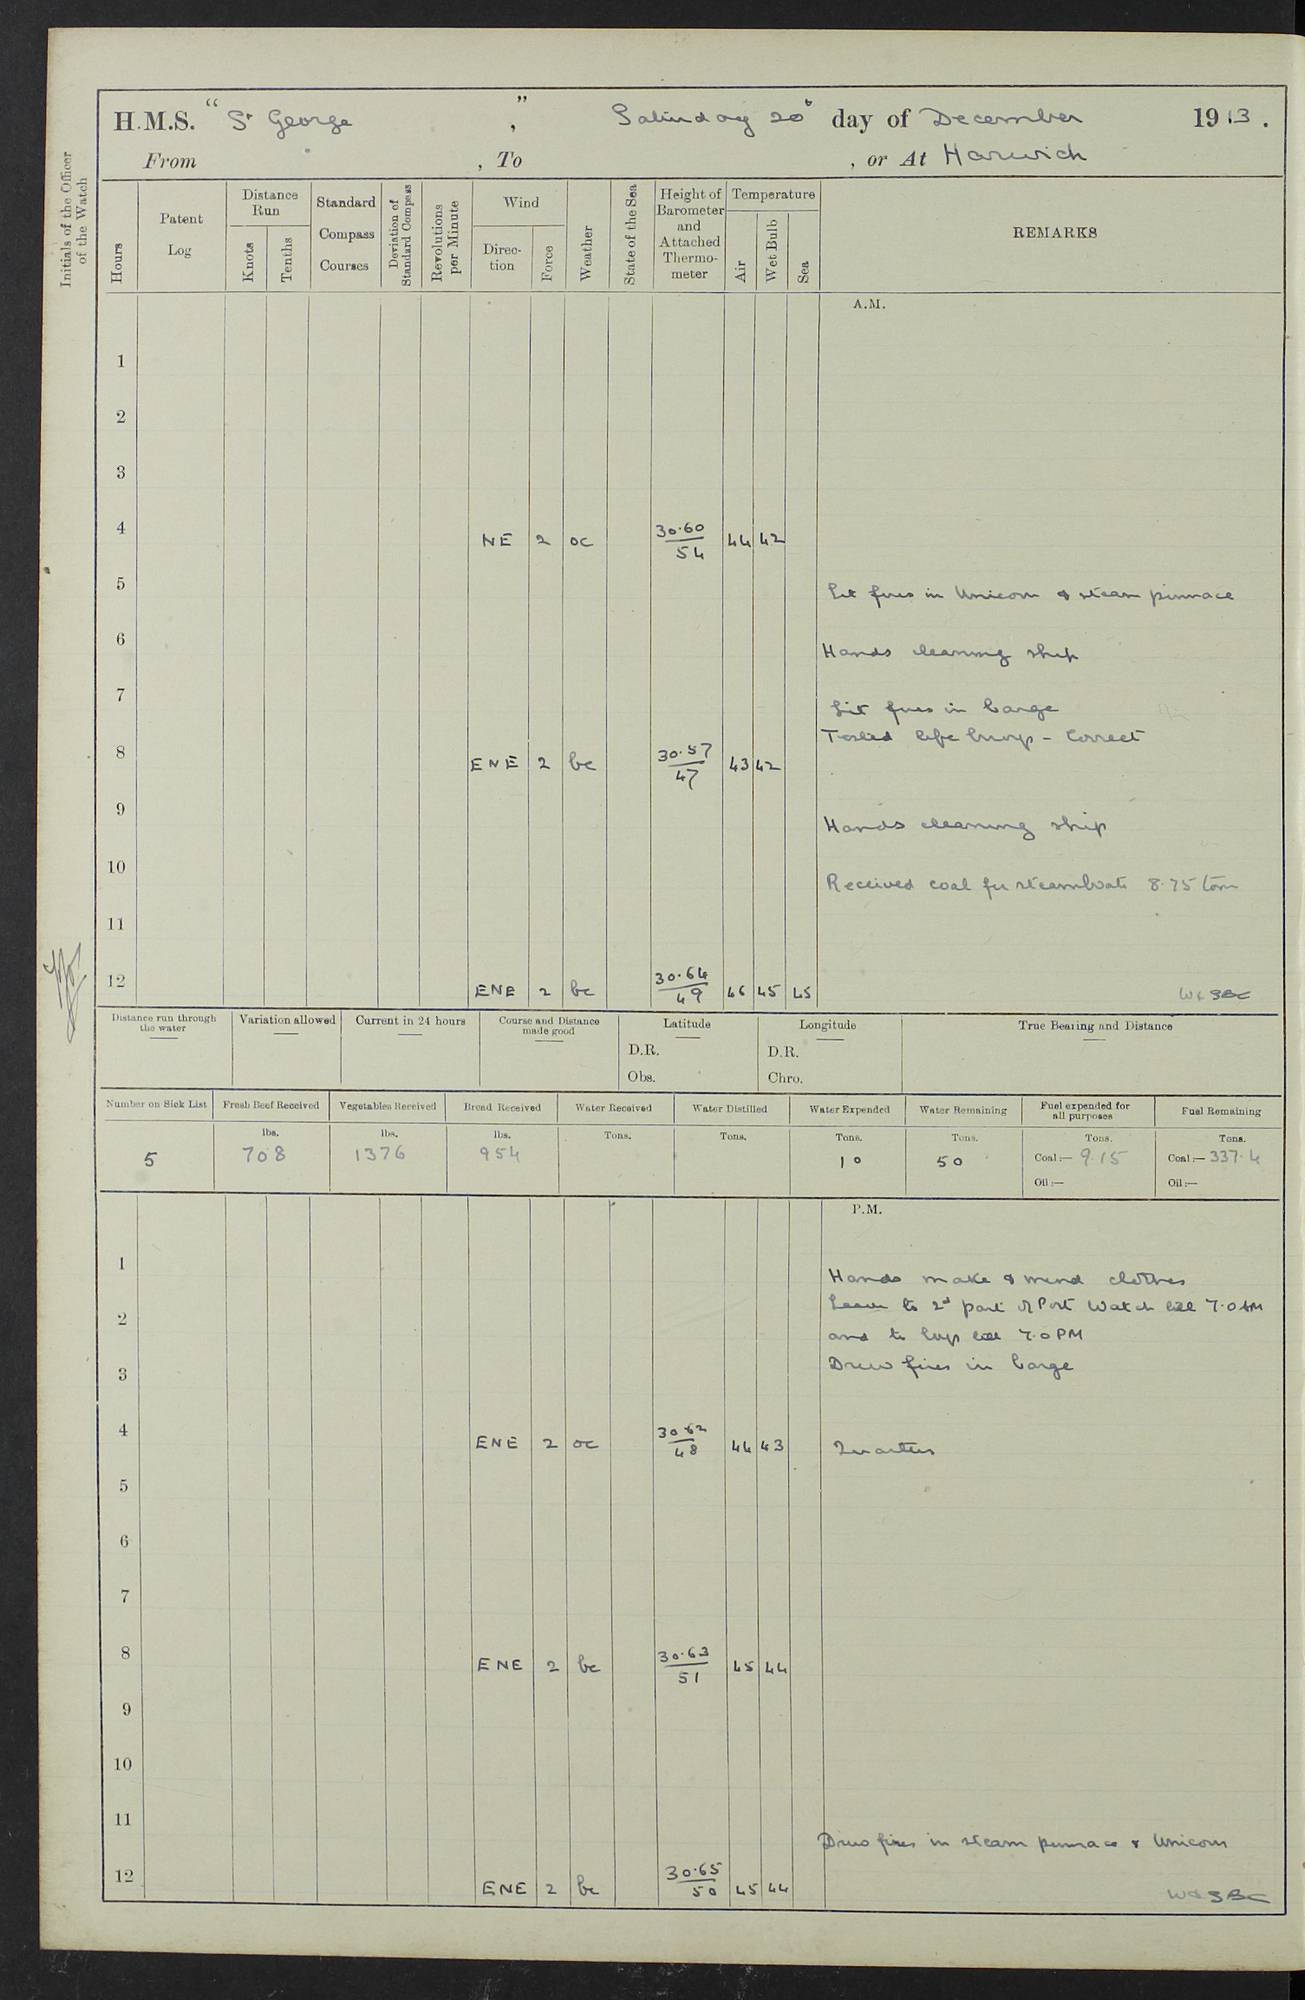 H.M.S. "St George", Saturday 20th day of December 1913.
From , To , or At Harwich
Initials of the Officer of the Watch
Hours
Patent Log
Distance Run
Knots
Tenths
Standard Compass Courses
Deviation of Standard Compass
Revolutions per Minute
Wind
Direction
Force
Weather
State of the Sea
Height of Barometer and Attached Thermometer
Temperature
Air
Wet Bulb
Sea
REMARKS
A.M.
1
2
3
4 NE 2 oc 30.60/54 44 42
5
Lit fires in Unicorn & steam pinnace
6
Hands cleaning ship
7
Lit fires in barge
Tested life buoys - Correct
8 ENE 2 bc 30.57/47 43 42
9
Hands cleaning ship
10
Received coal for steamboats 8.75 tons
11
12 ENE 2 bc 30.64/49 46 45 45
Distance run through the water
Variation allowed
Current in 24 hours
Course and Distance made good
Latitude
D.R.
Obs.
Longitude
D.R.
Chro.
True Bearing and Distance
Number on Sick List
Fresh Beef Received
Vegetables Received
Bread Received
Water Received
Water Distilled
Water Expended
Water Remaining
Fuel expended for all purposes
Fuel Remaining
lbs. lbs. lbs. Tons. Tons. Tons. Tons. Tons. Tons.
5 708 1376 954 10 50 Coal:— 9.15 Coal:— 337.4
Oil:— Oil:—
P.M.
1
Hands make & mend clothes
Leave to 2d part of Port Watch till 7.0 AM
2
and to boys till 7.0 PM
Drew fires in barge
3
4 ENE 2 oc 30.62/48 44 43 Quarters
5
6
7
8 ENE 2 bc 30.63/51 45 44
9
10
11
Drew fires in steam pinnace & Unicorn
12 ENE 2 bc 30.65/50 45 44